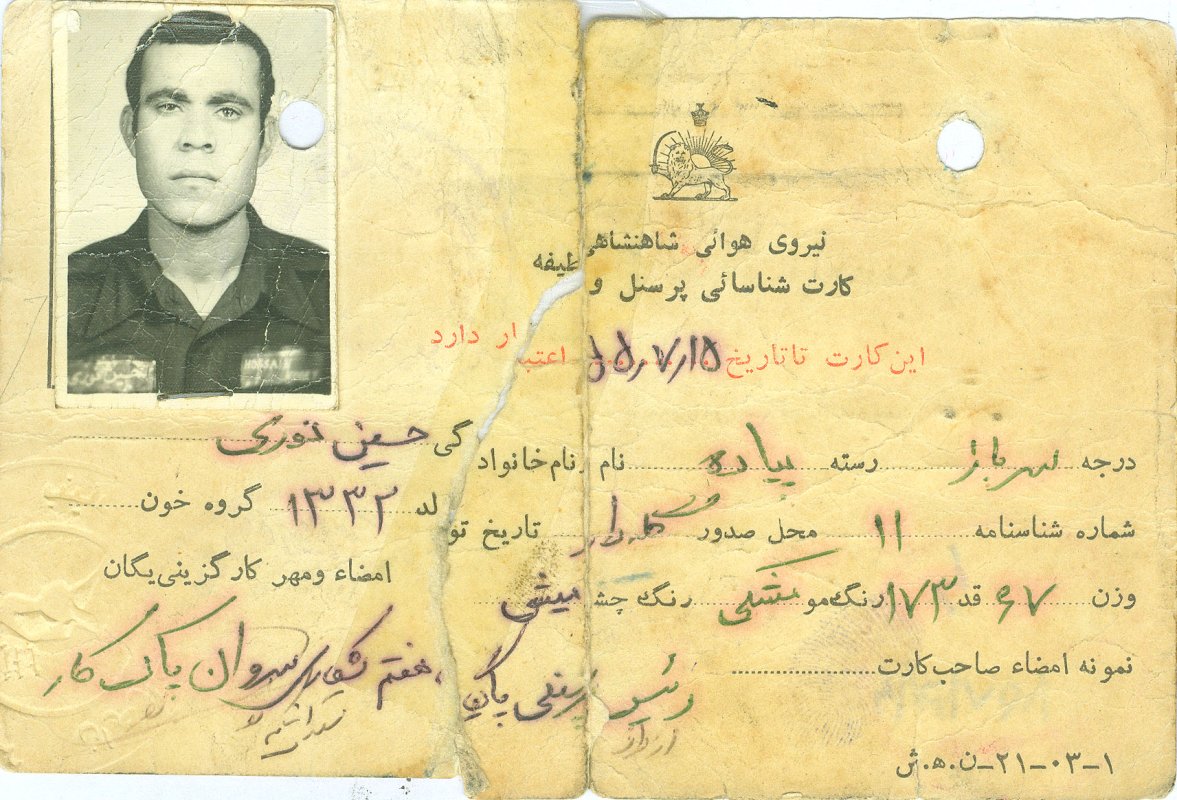 نیروی هوائی شاهنشاهی
کارت شناسائی پرسنل وظیفه
این کارت تا تاریخ ۵۵/۷/۱۵ اعتبار دارد
درجه سرباز رسته پیاده نام و نام خانوادگی حسین نوری
شماره شناسنامه ۱۱ محل صدور تاریخ تولد ۱۳۳۲ گروه خون
وزن ۶۷ قد ۱۷۳ رنگ مو مشکی رنگ چشم میشی
امضاء و مهر کارگزینی یگان
نمونه امضاء صاحب کارت
رئیس پرسنلی پایگاه هفتم شکاری سروان پاک کار
۱-۰۳-۲۱-ن.ه.ش